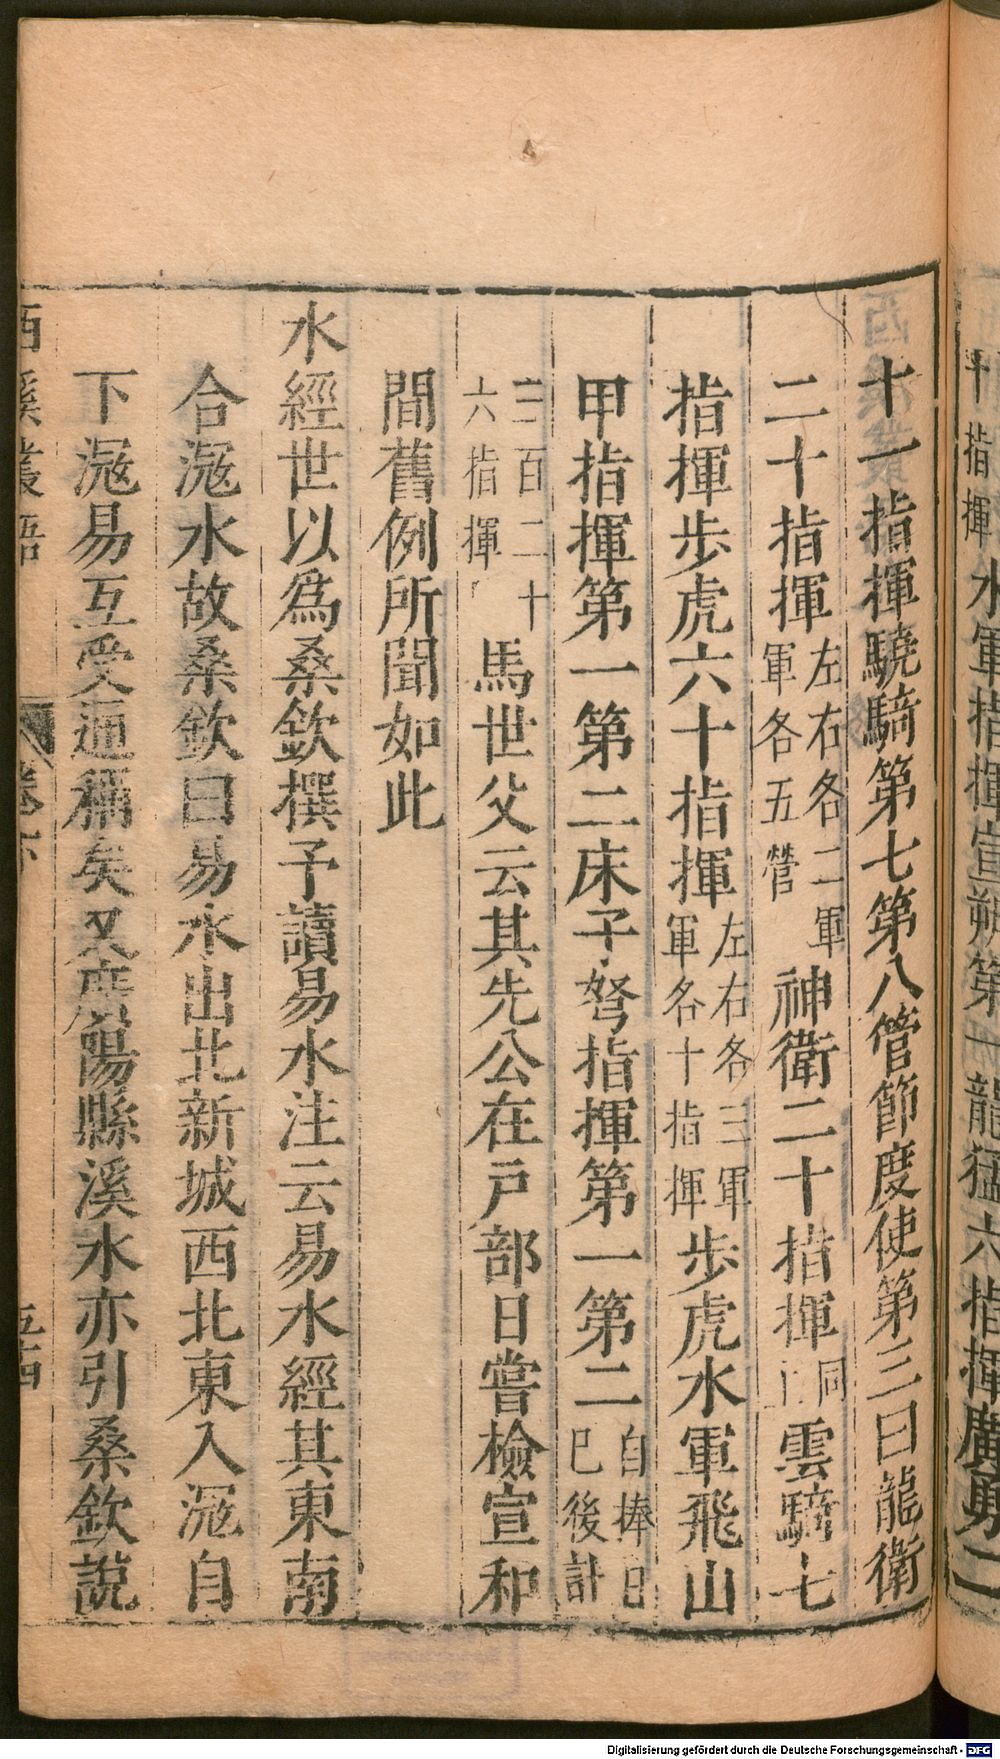 十指揮水軍指揮宣朔第一龍猛六指揮廣勇二
十一指揮驍騎第七第八管節度使第三曰龍衛
二十指揮左右各二軍軍各五營神衛二十指揮同雲騎七
指揮步虎六十指揮左右各三軍軍各十指揮步虎水軍飛山
甲指揮第一第二床子弩指揮第一第二自捧日已後計
三百二十六指揮馬世父云其先公在戶部日嘗檢宣和
間舊例所聞如此
水經世以為桑欽撰予讀易水注云易水經其東南
合㴲水故桑欽曰易水出北新城西北東入㴲自
下㴲易互受通稱矣又陽縣溪水亦引桑欽說
西溪叢語
卷下
五西
Digitalisierung gefördert durch die Deutsche Forschungsgemeinschaft - DFG